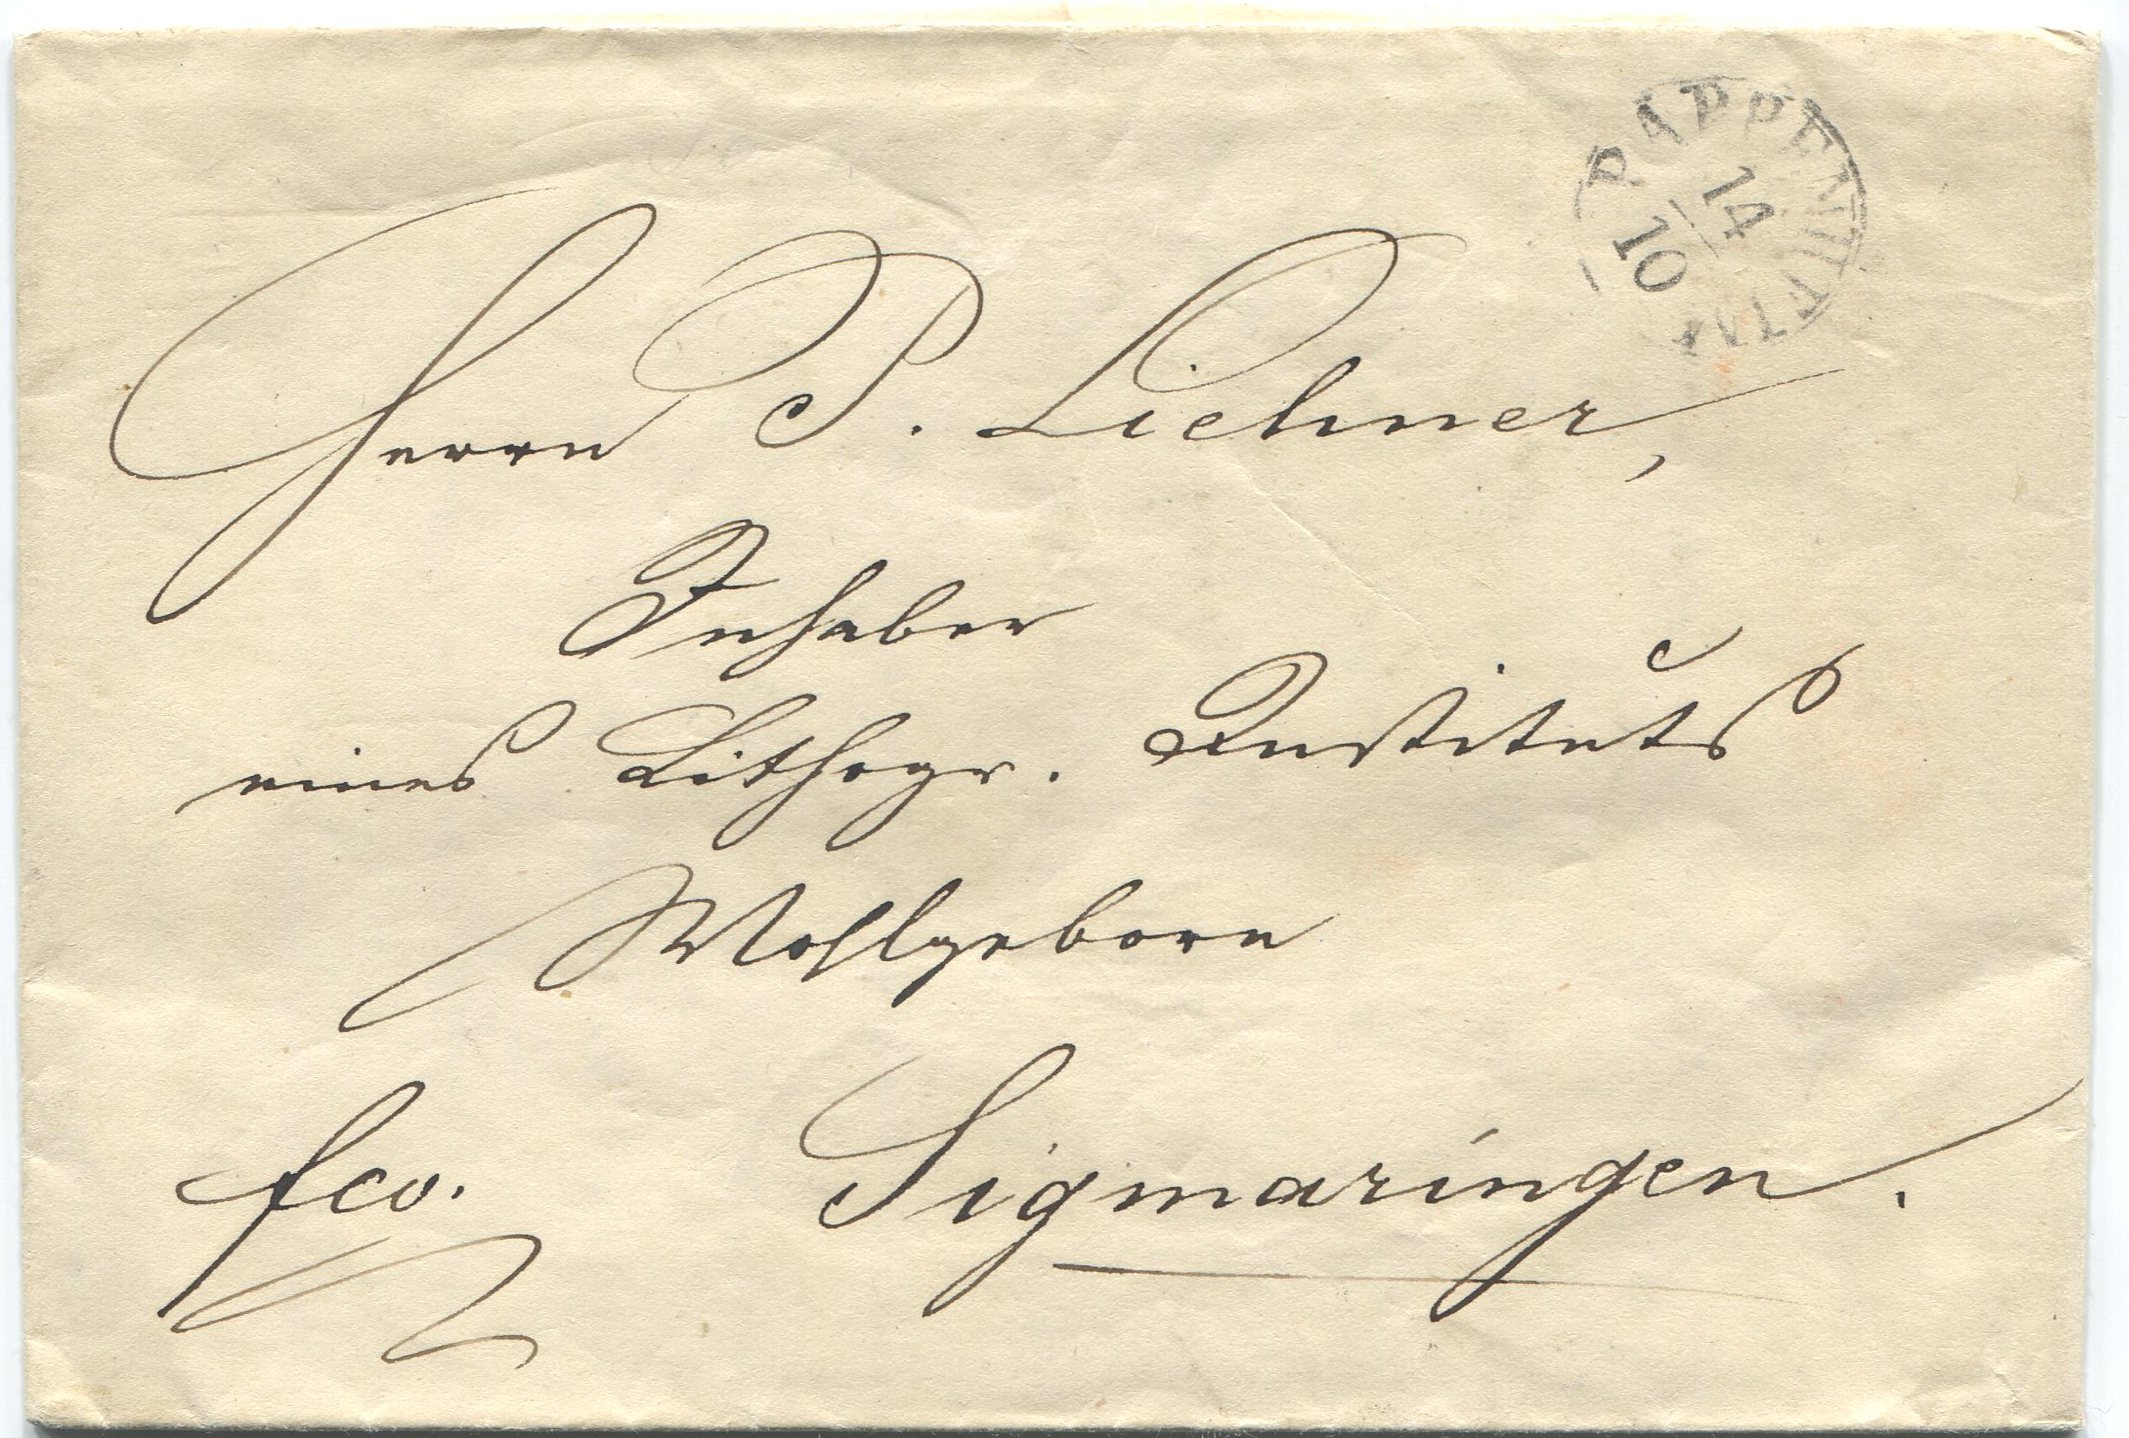 PAPPENHEIM
14
10
Herrn P. Liehner,
Inhaber
eines Lithogr. Instituts
Wohlgeborn
fco. Sigmaringen.